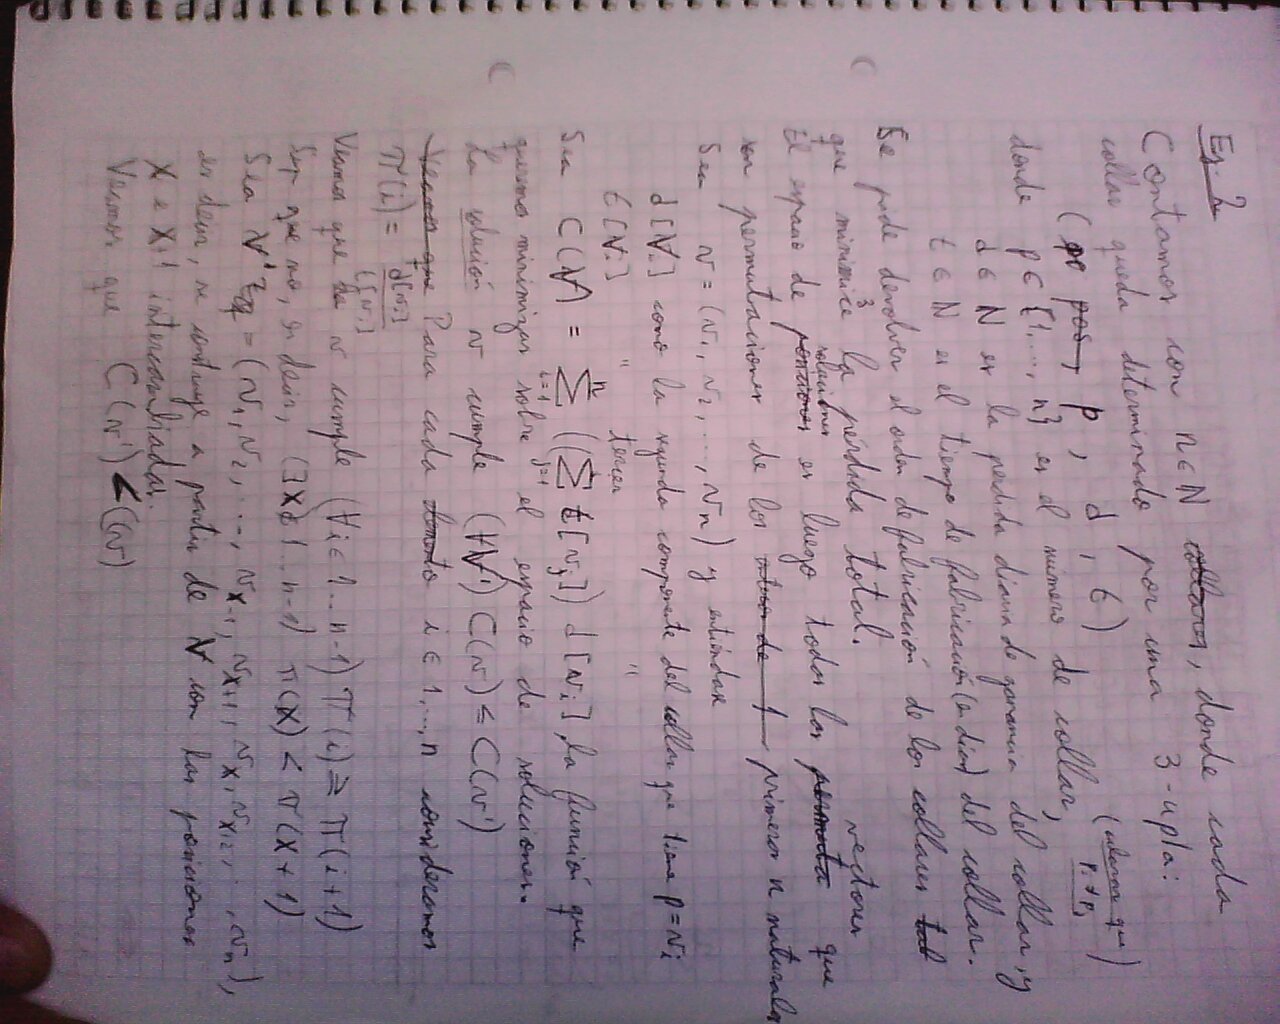 Ej. 2
Contamos con n ∈ N collares, donde cada
collar queda determinado por una 3-upla:
( p, d, t ) (sabemos que
donde p ∈ {1, ..., n} es el número de collar,
d ∈ N es la perdida diaria de ganancia del collar, y
t ∈ N es el tiempo de fabricación (en días) del collar.
Se pide devolver el orden de fabricación de los collares
que minimice la pérdida total.
El espacio de soluciones es luego todos los vectores que
son permutaciones de los primeros n naturales
Sea v = (v1, v2, ..., vn) y entiendase
d[vi] como la segunda componente del collar que tiene p = vi
t[vi] " tercer "
Sea C(v) = Σ i=1 n ((Σ j=1 i t[vj]) d[vi]), la función que
queremos minimizar sobre el espacio de soluciones.
La solución v cumple (∀v') C(v) ≤ C(v')
Para cada i ∈ 1, ..., n consideramos
π(i) = d[vi] / t[vi]
Veamos que v cumple (∀i ∈ 1..n-1) π(i) ≥ π(i+1)
Sup. que no, es decir, (∃x ∈ 1...n-1) π(x) < π(x+1)
Sea v' = (v1, v2, ..., vx-1, vx+1, vx, vx+2, ..., vn),
es decir, se construye a partir de v con las posiciones
x e x+1 intercambiadas.
Veamos que C(v') < C(v)